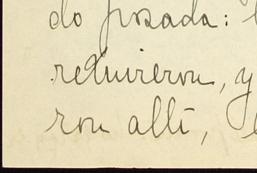 do posada:
retuvieron, y
ron allí,